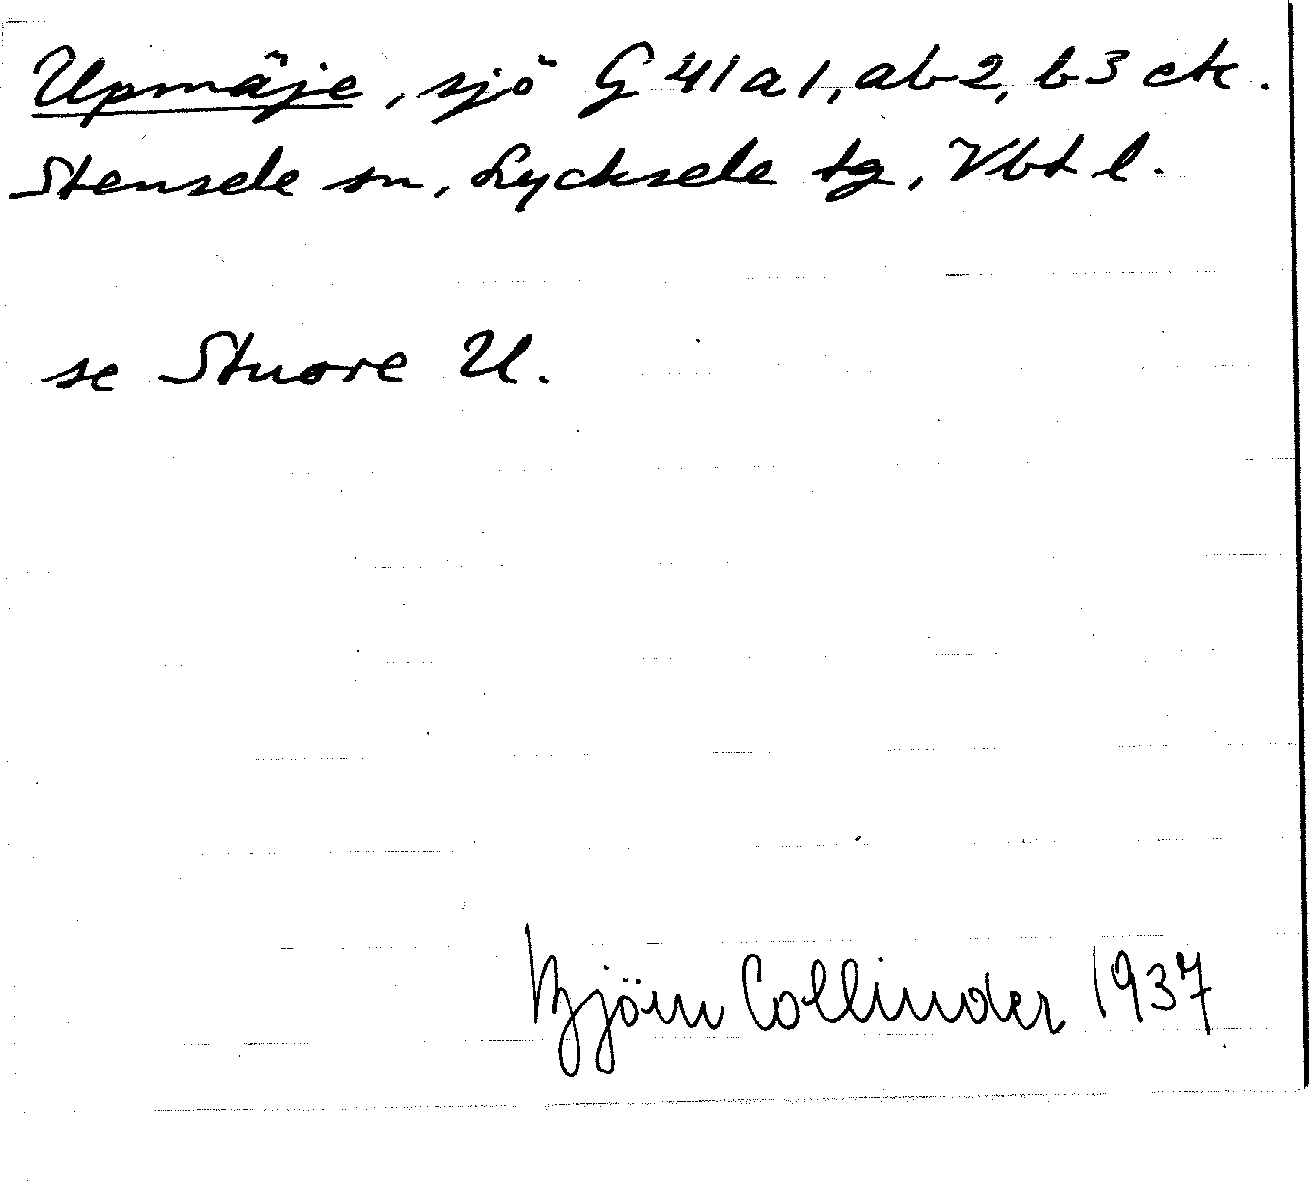 Upmäje, sjö G 41 a 1, ab 2, b 3 ek.
Stensele sn, Lycksele tg, Vbt l.
se Stuore U.
Björn Collinder 1937